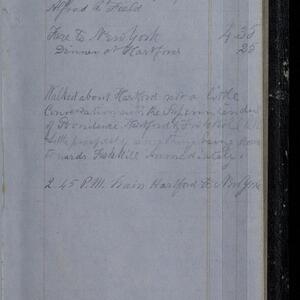 Alfred A. Field
Fare to New York 4.35
Dinner at Hartford 25
Walked about Hartford not a little
Conversation with the Superintenden
of Providence Hartford & Fishkill
little prospect, any thing being done
towards Fishkill immediately
2.45 P.M. Train Hartford to New York